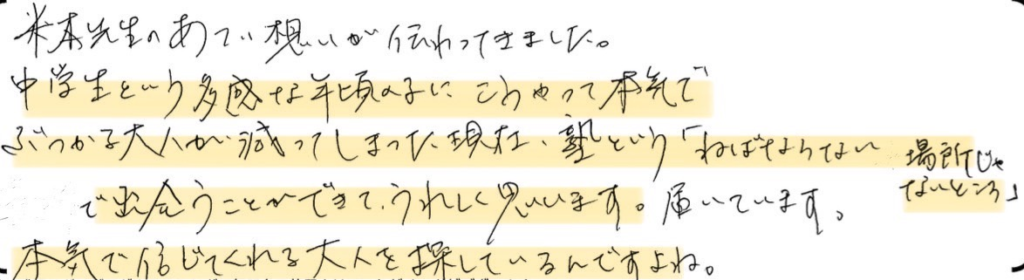 米本先生のあつい想いが伝わってきました。
中学生という多感な年頃の子に こうやって本気で
ぶつかる大人が減ってしまった現在、塾という「ねばならない
場所じゃ
ないところ」
で出会うことができて、うれしく思います。届いています。
本気で信じてくれる大人を探しているんですよね。